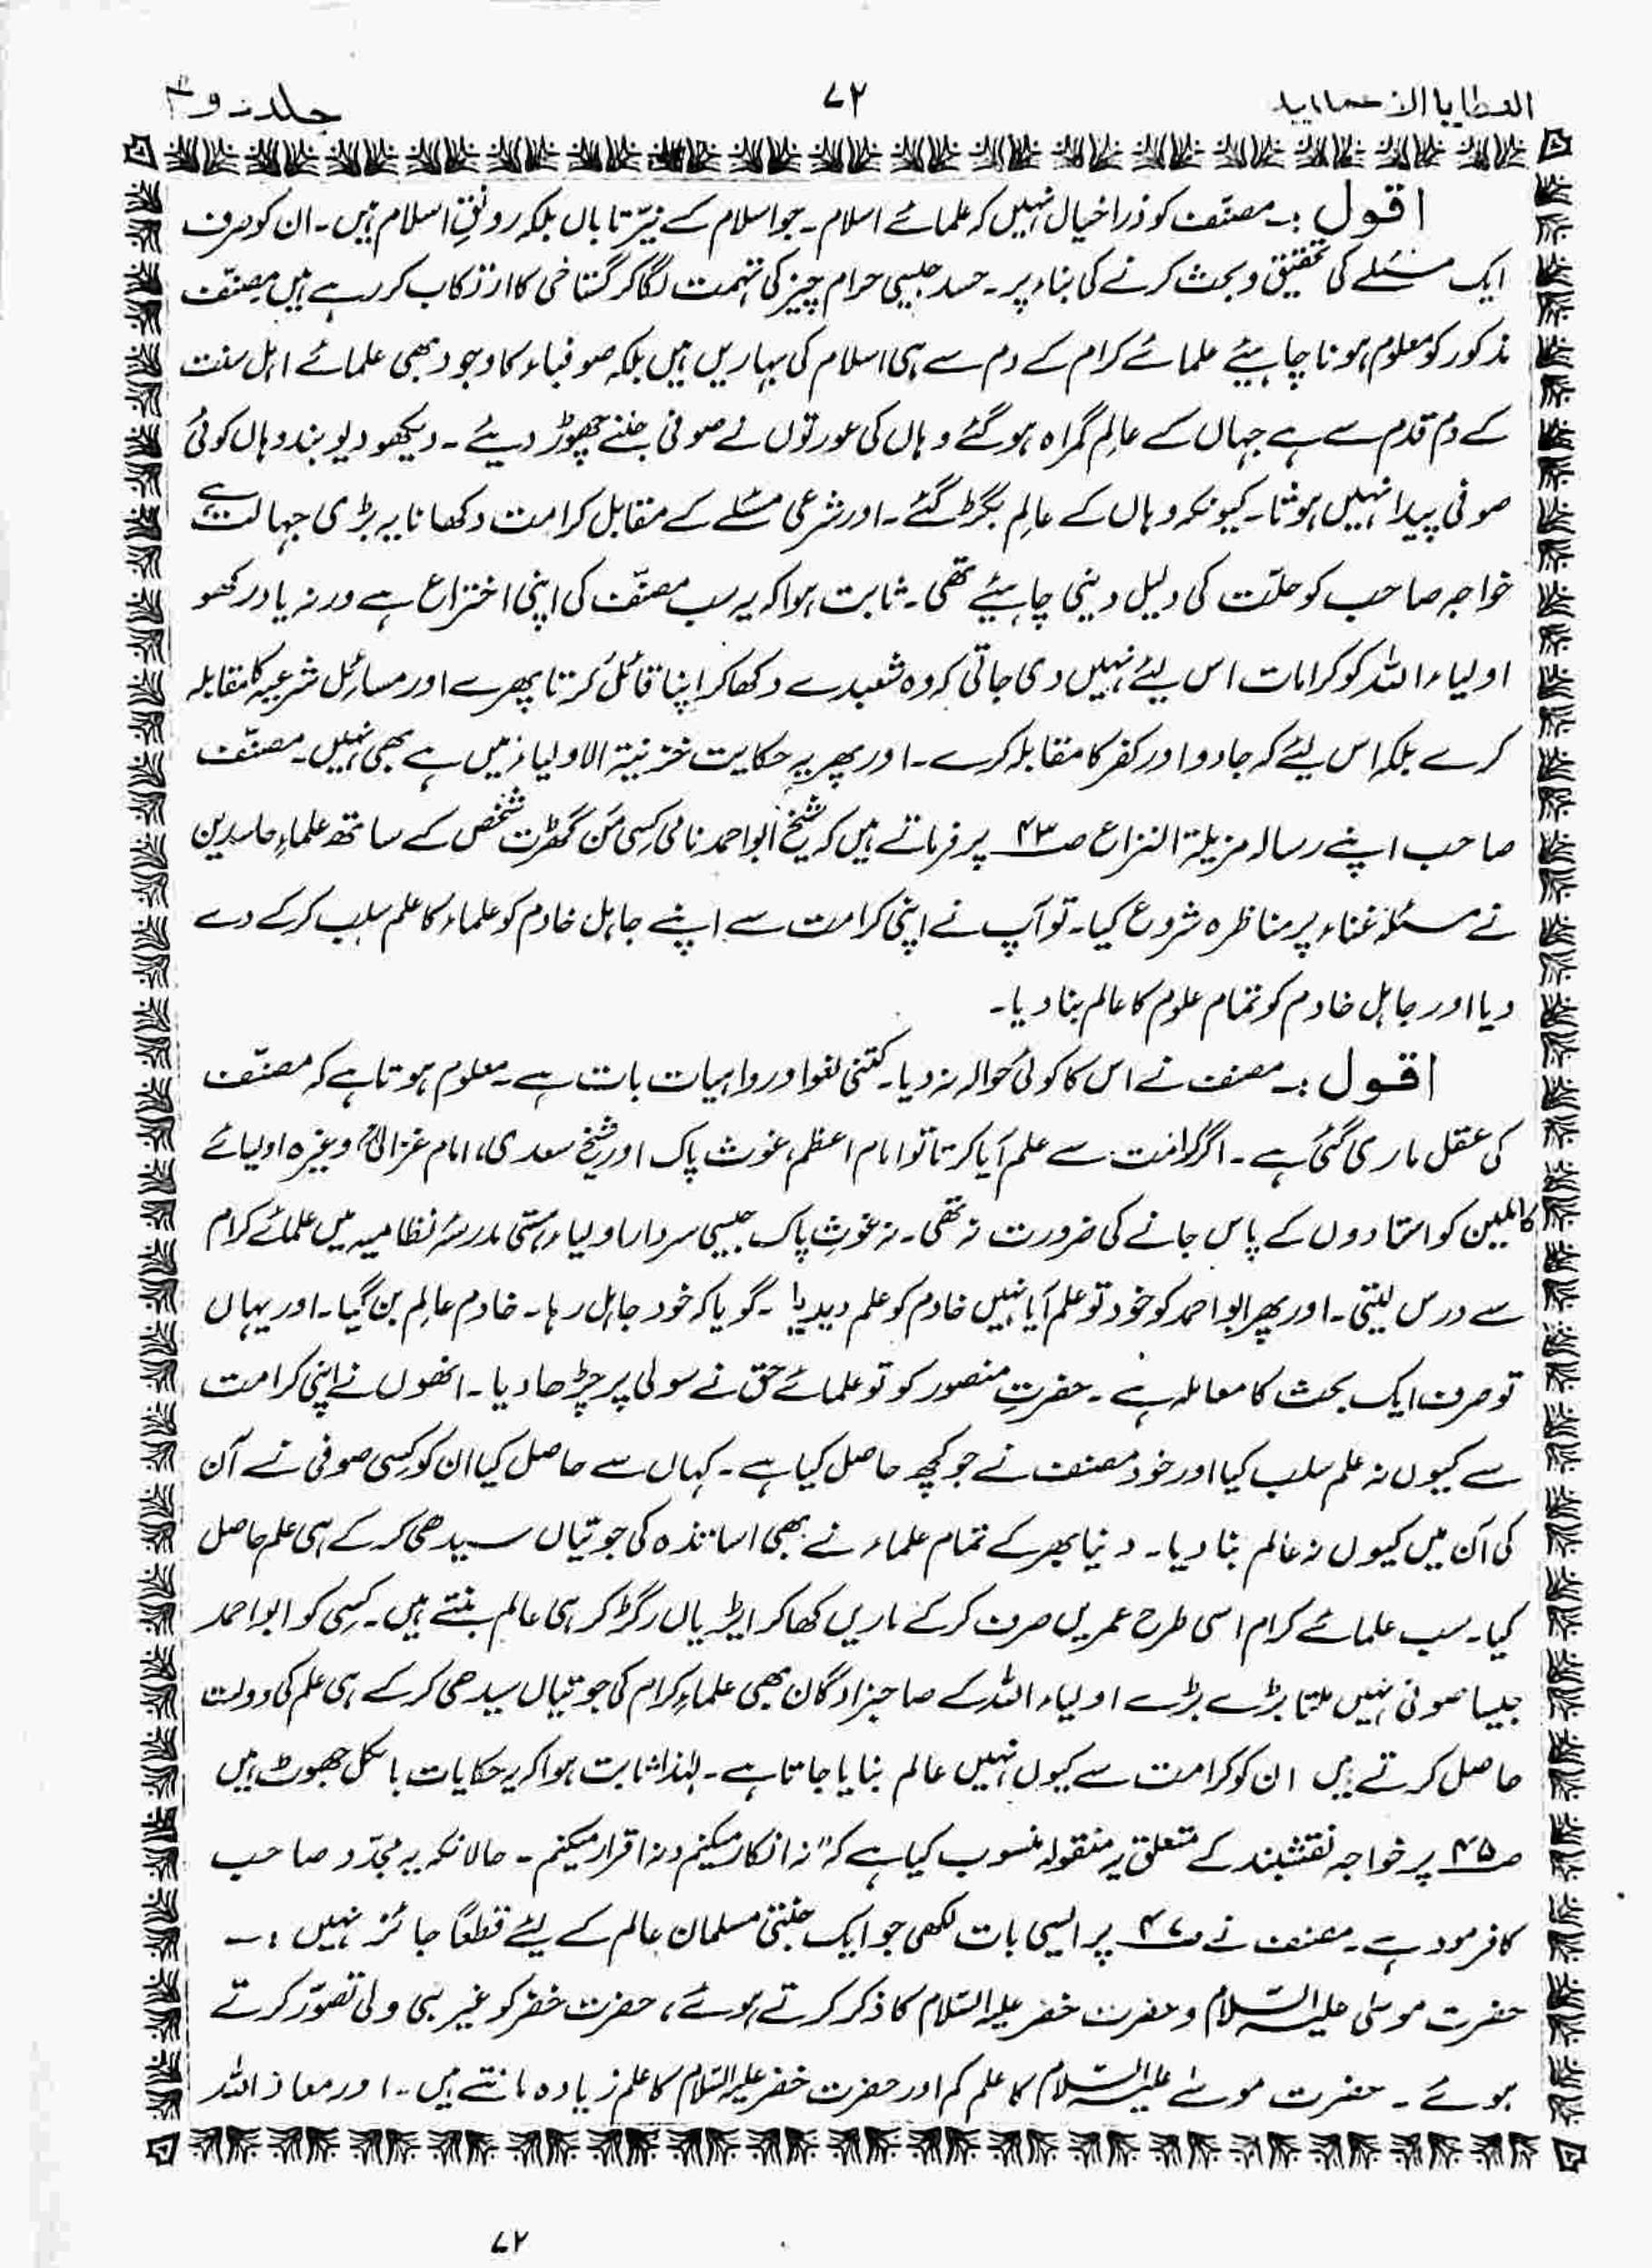 العطایا الاحمدیہ
۷۲
جلد دوم
اقول :۔ مصنّف کو ذرا خیال نہیں کہ علمائے اسلام ۔ جو اسلام کے نیّر تاباں بلکہ رونقِ اسلام ہیں ۔ ان کو صرف
ایک مسئلے کی تحقیق و بحث کرنے کی بناء پر ۔ حسد جیسی حرام چیز کی تہمت لگا کر گستاخی کا ارتکاب کر رہے ہیں مصنّف
مذکور کو معلوم ہونا چاہیئے علمائے کرام کے دم سے ہی اسلام کی بہاریں ہیں بلکہ صوفیاء کا وجود بھی علمائے اہل سنت
کے دم قدم سے ہے جہاں کے عالِم گمراہ ہو گئے وہاں کی عورتوں نے صوفی جننے چھوڑ دیئے ۔ دیکھو دیوبند وہاں کوئی
صوفی پیدا نہیں ہوتا ۔ کیونکہ وہاں کے عالِم بگڑ گئے ۔ اور شرعی مسئلے کے مقابل کرامت دکھانا یہ بڑی جہالت ہے
خواجہ صاحب کو حلّت کی دلیل دینی چاہیئے تھی ۔ ثابت ہوا کہ یہ سب مصنّف کی اپنی اختراع ہے ورنہ یاد رکھو
اولیاء اللہ کو کرامات اس لیئے نہیں دی جاتی کہ وہ شعبدے دکھا کر اپنا قائل کرتا پھرے اور مسائل شرعیہ کا مقابلہ
کرے بلکہ اس لیئے کہ جادو اور کفر کا مقابلہ کرے ۔ اور پھر یہ حکایت خزینۃ الاولیاء میں ہے بھی نہیں ۔ مصنّف
صاحب اپنے رسالہ مزیلۃ النزاع صـ۴۳ پر فرماتے ہیں کہ شیخ ابو احمد نامی کسی من گھڑت شخص کے ساتھ علماءِ حاسدین
نے مسئلہ غناء پر مناظرہ شروع کیا ۔ تو آپ نے اپنی کرامت سے اپنے جاہل خادم کو علماء کا علم سلب کر کے دے
دیا اور جاہل خادم کو تمام علوم کا عالم بنا دیا ۔
اقول :۔ مصنف نے اس کا کوئی حوالہ نہ دیا ۔ کتنی لغو اور واہیات بات ہے ۔ معلوم ہوتا ہے کہ مصنّف
کی عقل ماری گئی ہے ۔ اگر کرامت سے علم آیا کرتا تو امام اعظم، غوث پاک اور شیخ سعدی، امام غزالیؒ وغیرہ اولیائے
کاملین کو استادوں کے پاس جانے کی ضرورت نہ تھی ۔ نہ غوثِ پاک جیسی سردار اولیاء ہستی مدرسۂ نظامیہ میں علمائے کرام
سے درس لیتی ۔ اور پھر ابو احمد کو خود تو علم آیا نہیں خادم کو علم دیدیا ۔ گویا کہ خود جاہل رہا ۔ خادم عالِم بن گیا ۔ اور یہاں
تو صرف ایک بحث کا معاملہ ہے ۔ حضرتِ منصور کو تو علمائے حق نے سولی پر چڑھا دیا ۔ انھوں نے اپنی کرامت
سے کیوں نہ علم سلب کیا اور خود مصنف نے جو کچھ حاصل کیا ہے ۔ کہاں سے حاصل کیا ان کو کسی صوفی نے آن
کی آن میں کیوں نہ عالم بنا دیا ۔ دنیا بھر کے تمام علماء نے بھی اساتذہ کی جوتیاں سیدھی کر کے ہی علم حاصل
کیا ۔ سب علمائے کرام اسی طرح عمریں صرف کر کے ماریں کھا کر ایڑیاں رگڑ کر ہی عالم بنتے ہیں ۔ کسی کو ابو احمد
جیسا صوفی نہیں ملتا بڑے بڑے اولیاء اللہ کے صاحبزادگان بھی علماءِ کرام کی جوتیاں سیدھی کر کے ہی علم کی دولت
حاصل کرتے ہیں ان کو کرامت سے کیوں نہیں عالم بنایا جاتا ہے ۔ لہٰذا ثابت ہوا کہ یہ حکایات بالکل جھوٹ ہیں
صـ۴۵ پر خواجہ نقشبند کے متعلق یہ منقولہ منسوب کیا ہے کہ "نہ انکار میکنم و نہ اقرار میکنم ۔ حالانکہ یہ مجدّد صاحب
کا فرمود ہے ۔ مصنف نے صـ۴۷ پر ایسی بات لکھی جو ایک جنتی مسلمان عالم کے لیئے قطعاً جائز نہیں :۔
حضرت موسیٰ علیہ السّلام و حضرت خضر علیہ السّلام کا ذکر کرتے ہوئے، حضرت خضر کو غیر نبی ولی تصوّر کرتے
ہوئے ۔ حضرت موسےٰ علیہ السّلام کا علم کم اور حضرت خضر علیہ السّلام کا علم زیادہ مانتے ہیں ۔ اور معاذ اللہ
۷۲